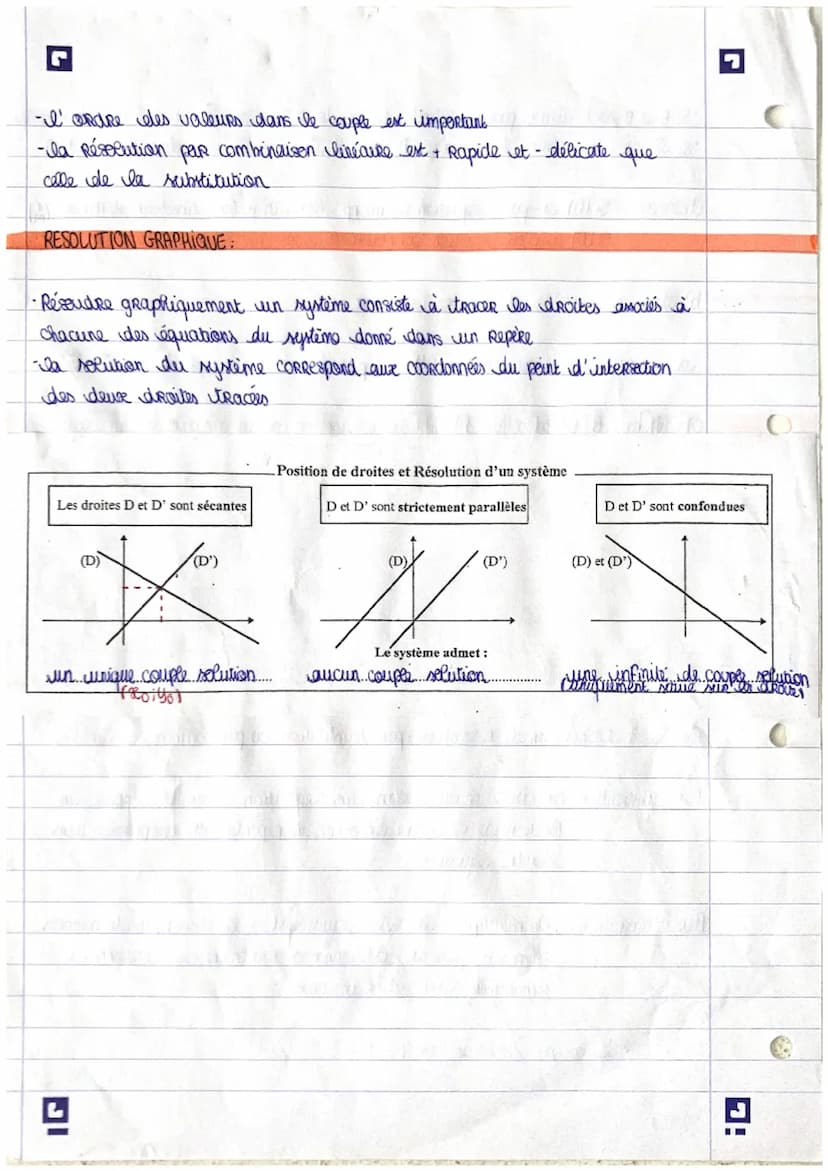 -l'ordre des valeurs dans le couple est important
-la résolution par combinaison linéaire est + rapide et - délicate que
celle de la substitution
RESOLUTION GRAPHIQUE :
· Résoudre graphiquement un système consiste à tracer les droites associés à
chacune des équations du système donné dans un repère
-la solution du système correspond aux coordonnées du point d'intersection
des deux droites tracées
Position de droites et Résolution d'un système
Les droites D et D' sont sécantes
D et D' sont strictement parallèles
D et D' sont confondues
(D)
(D')
(D)
(D')
(D) et (D')
Le système admet :
un unique couple solution....
aucun couple solution...............
une infinité de couple solution
(x0;y0)
(uniquement situé sur les droites)